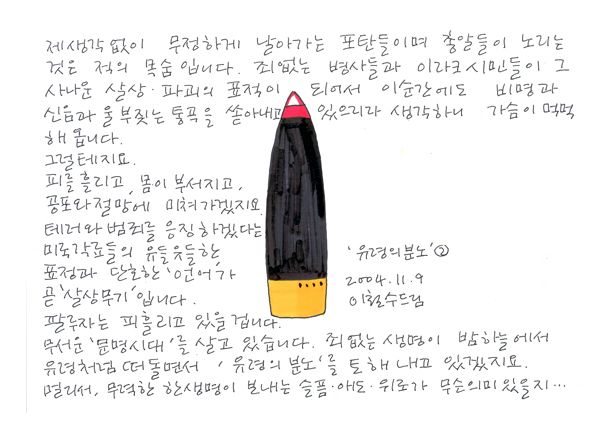 제생각없이 무정하게 날아가는 포탄들이며 총알들이 노리는
것은 적의 목숨입니다. 죄없는 병사들과 이라크시민들이 그
사나운 살상·파괴의 표적이 되어서 이순간에도 비명과
신음과 울부짖는 통곡을 쏟아내고 있으리라 생각하니 가슴이 먹먹
해 옵니다.
그럴테지요.
피를 흘리고, 몸이 부서지고,
공포와 절망에 미쳐가겠지요.
테러와 범죄를 응징하겠다는
미국각료들의 유들유들한
표정과 단호한 '언어'가
곧 '살상무기'입니다.
팔루자는 피흘리고 있을겁니다.
무서운 '문명시대'를 살고 있습니다. 죄없는 생명이 밤하늘에서
유령처럼 떠돌면서 '유령의 분노'를 토해 내고 있겠지요.
멀리서, 무력한 한생명이 보내는 슬픔·애도·위로가 무슨의미 있을지…
'유령의 분노' ②
2004.11.9
이철수드림